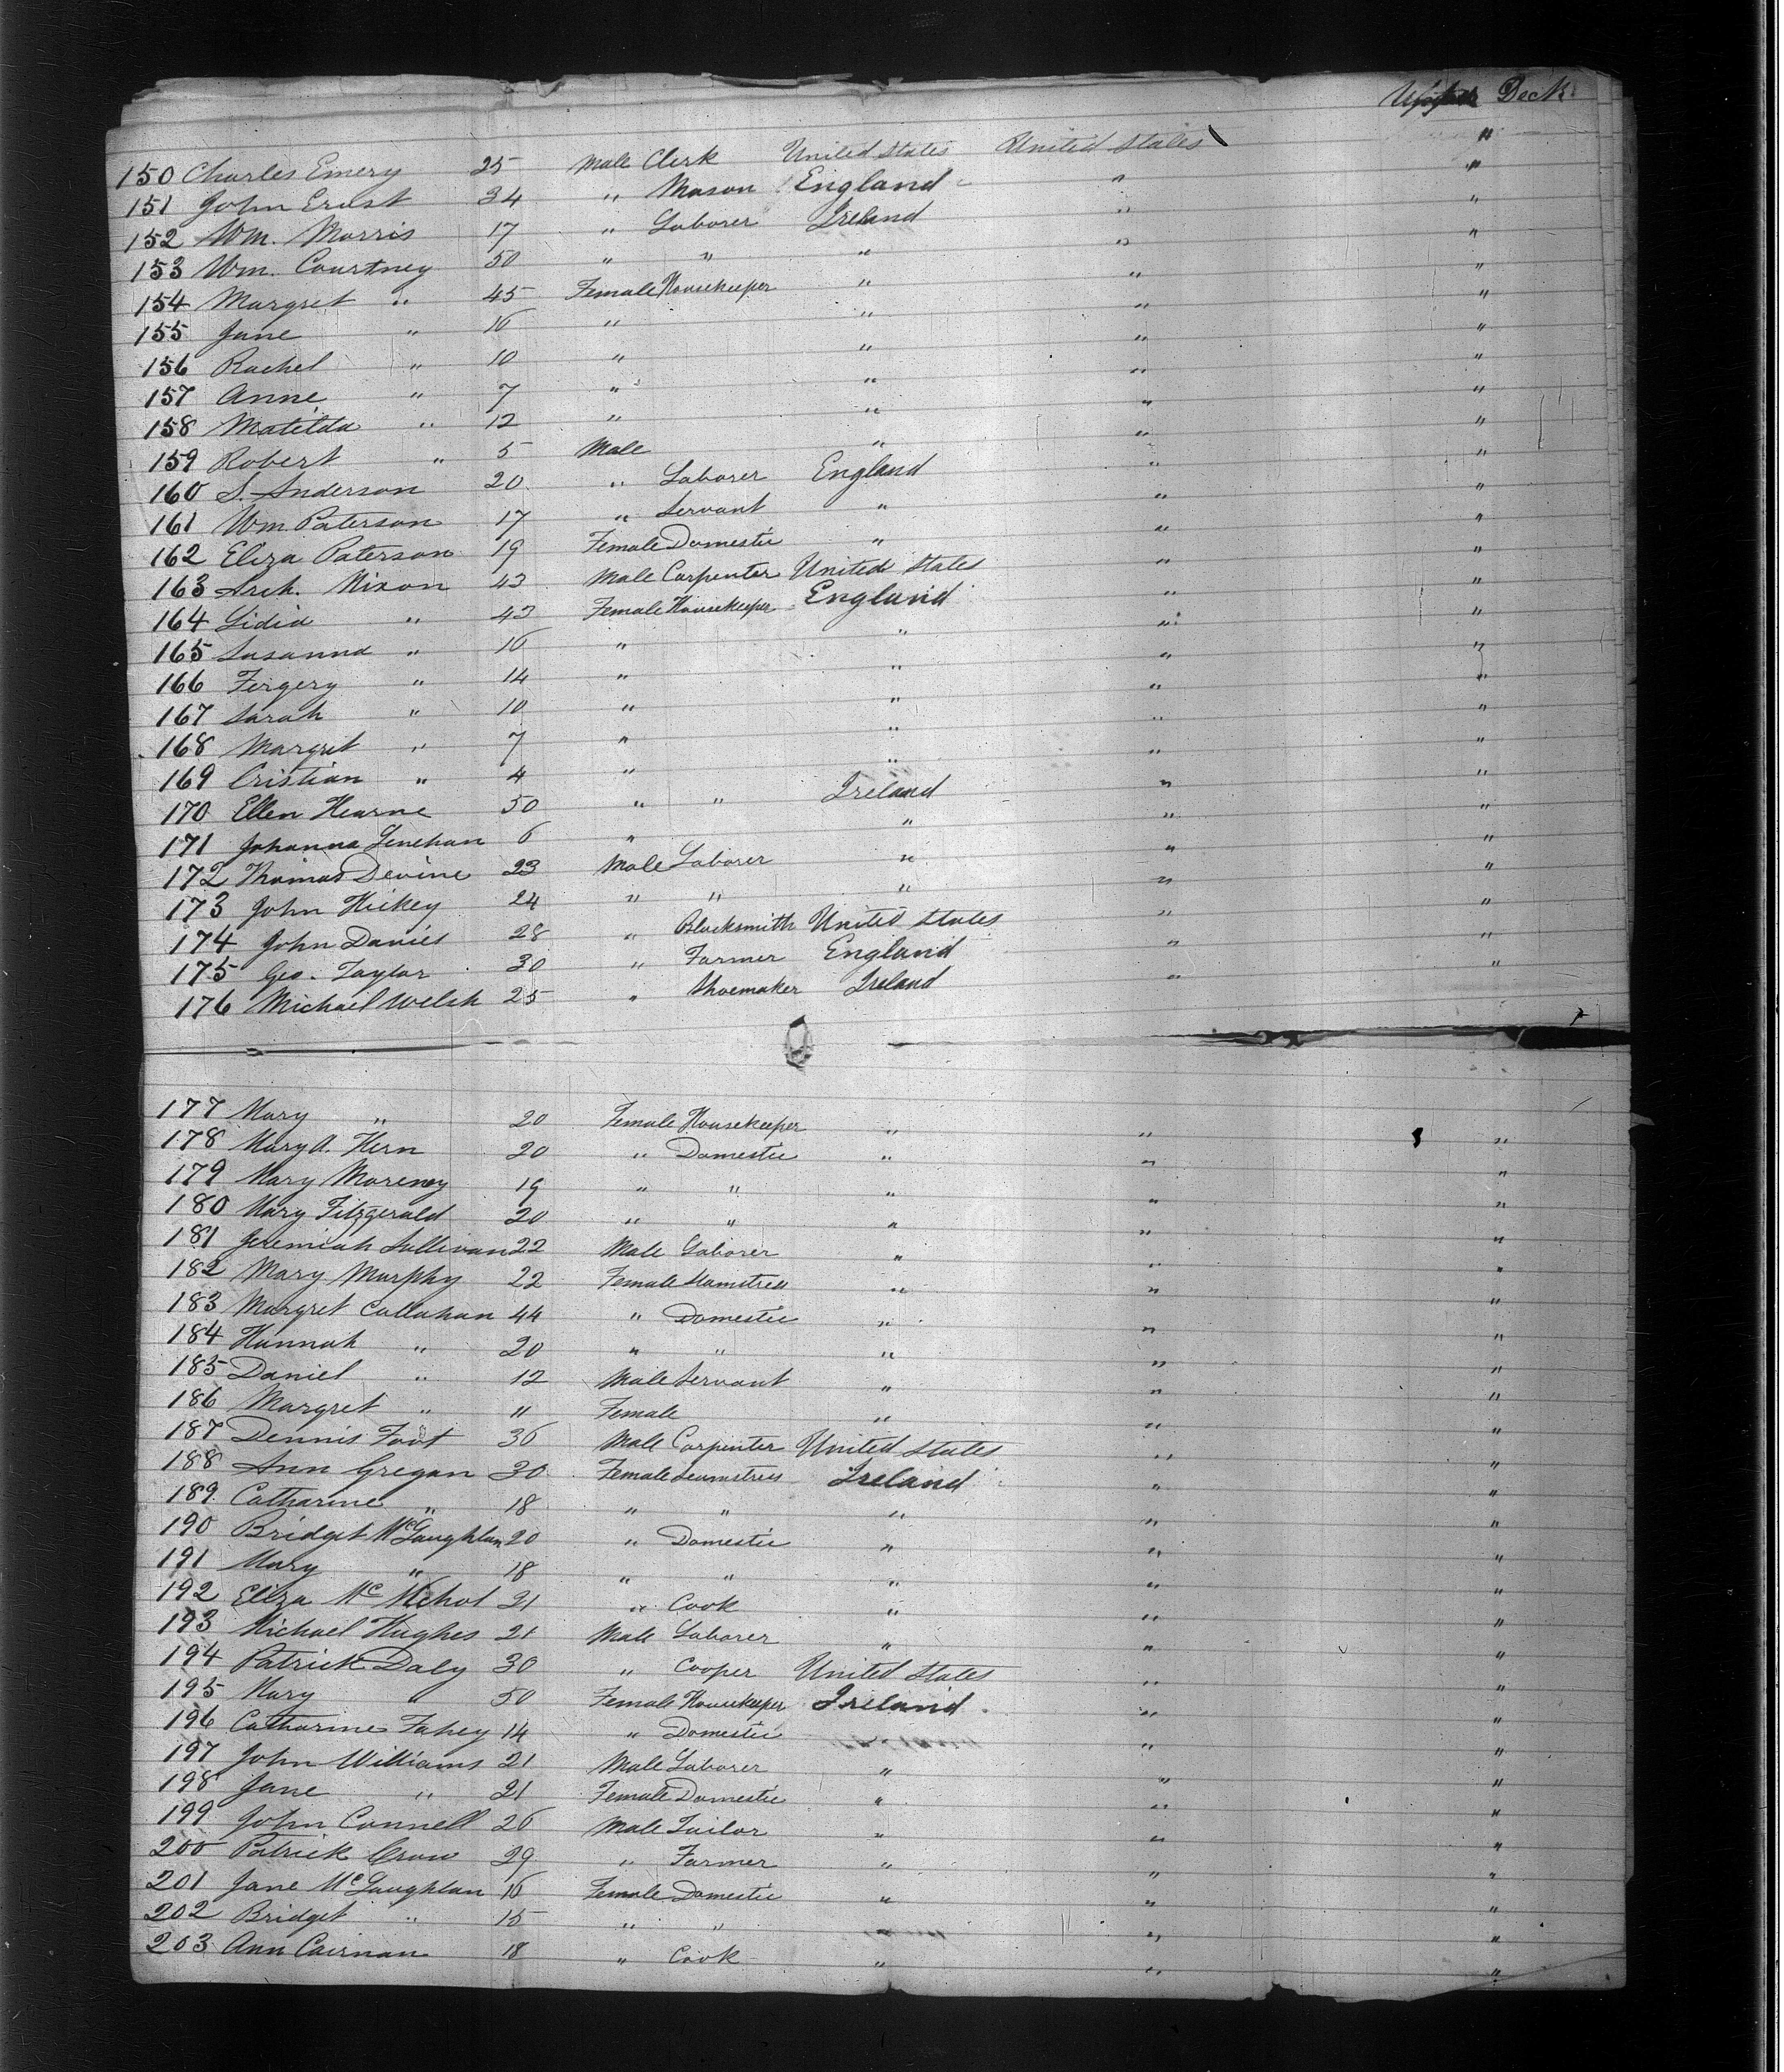 Upper Deck
150 Charles Emery 25 Male Clerk United States United States "
151 John Ernst 34 " Mason England " "
152 Wm. Morris 17 " Laborer Ireland " "
153 Wm. Courtney 50 " " " " "
154 Margret " 45 Female Housekeeper " " "
155 Jane " 16 " " " "
156 Rachel " 10 " " " "
157 Anne " 7 " " " "
158 Matilda " 12 " " " "
159 Robert " 5 Male " " "
160 S. Anderson 20 " Laborer England " "
161 Wm. Paterson 17 " Servant " " "
162 Eliza Paterson 19 Female Domestic " " "
163 Arch. Nixon 43 Male Carpenter United States " "
164 Lidia " 43 Female Housekeeper England " "
165 Susanna " 16 " " " "
166 Fergery " 14 " " " "
167 Sarah " 10 " " " "
168 Margret " 7 " " " "
169 Cristian " 4 " " " "
170 Ellen Hearne 50 " " Ireland " "
171 Johanna Lenehan 6 " " " "
172 Thomas Devine 23 Male Laborer " " "
173 John Hickey 24 " " " " "
174 John Davies 28 " Blacksmith United States " "
175 Geo. Taylor 30 " Farmer England " "
176 Michail Welsh 25 " Shoemaker Ireland " "
177 Mary " 20 Female Housekeeper " " "
178 Mary A. Hern 20 " Domestic " " "
179 Mary Moreney 19 " " " " "
180 Mary Fitzgerald 20 " " " " "
181 Jeremiah Sullivan 22 Male Laborer " " "
182 Mary Murphy 22 Female Seamstress " " "
183 Margret Callahan 44 " Domestic " " "
184 Hannah " 20 " " " " "
185 Daniel " 12 Male Servant " " "
186 Margret " 11 Female " " "
187 Dennis Foot 36 Male Carpenter United States " "
188 Ann Gregan 30 Female Seamstress Ireland " "
189 Catharine " 18 " " " " "
190 Bridget McLaughlan 20 " Domestic " " "
191 Mary " 18 " " " " "
192 Eliza Mc Nichol 21 " Cook " " "
193 Michael Hughes 21 Male Laborer " " "
194 Patrick Daly 30 " Cooper United States " "
195 Mary " 50 Female Housekeeper Ireland " "
196 Catharine Fahey 14 " Domestic " "
197 John Williams 21 Male Laborer " " "
198 Jane " 21 Female Domestic " " "
199 John Connell 26 Male Tailor " " "
200 Patrick Crow 29 " Farmer " " "
201 Jane McLaughlan 16 Female Domestic " " "
202 Bridget " 15 " " " " "
203 Ann Cairnan 18 " Cook " " "